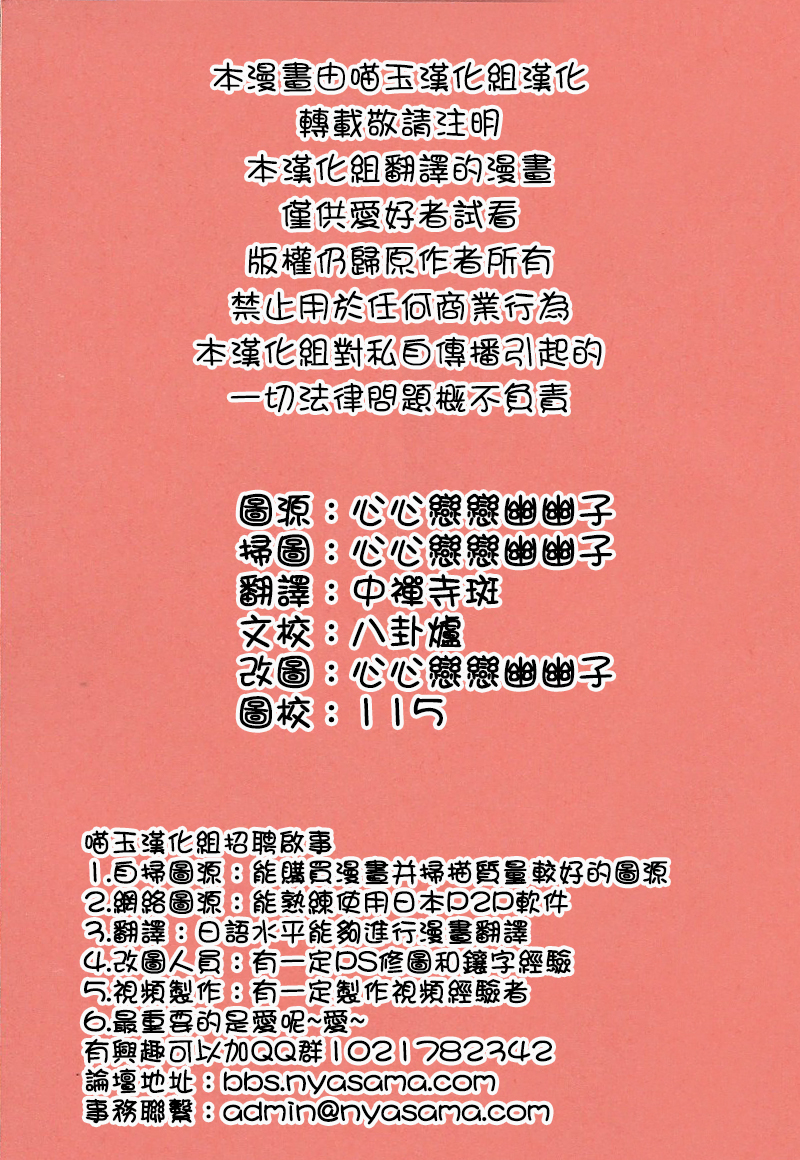 本漫畫由喵玉漢化組漢化
轉載敬請注明
本漢化組翻譯的漫畫
僅供愛好者試看
版權仍歸原作者所有
禁止用於任何商業行為
本漢化組對私自傳播引起的
一切法律問題概不負責
圖源：心心戀戀幽幽子
掃圖：心心戀戀幽幽子
翻譯：中禪寺斑
文校：八卦爐
改圖：心心戀戀幽幽子
圖校：115
喵玉漢化組招聘啟事
1.自掃圖源：能購買漫畫并掃描質量較好的圖源
2.網絡圖源：能熟練使用日本P2P軟件
3.翻譯：日語水平能夠進行漫畫翻譯
4.改圖人員：有一定PS修圖和鑲字經驗
5.視頻製作：有一定製作視頻經驗者
6.最重要的是愛呢~愛~
有興趣可以加QQ群1021782342
論壇地址：bbs.nyasama.com
事務聯繫：admin@nyasama.com